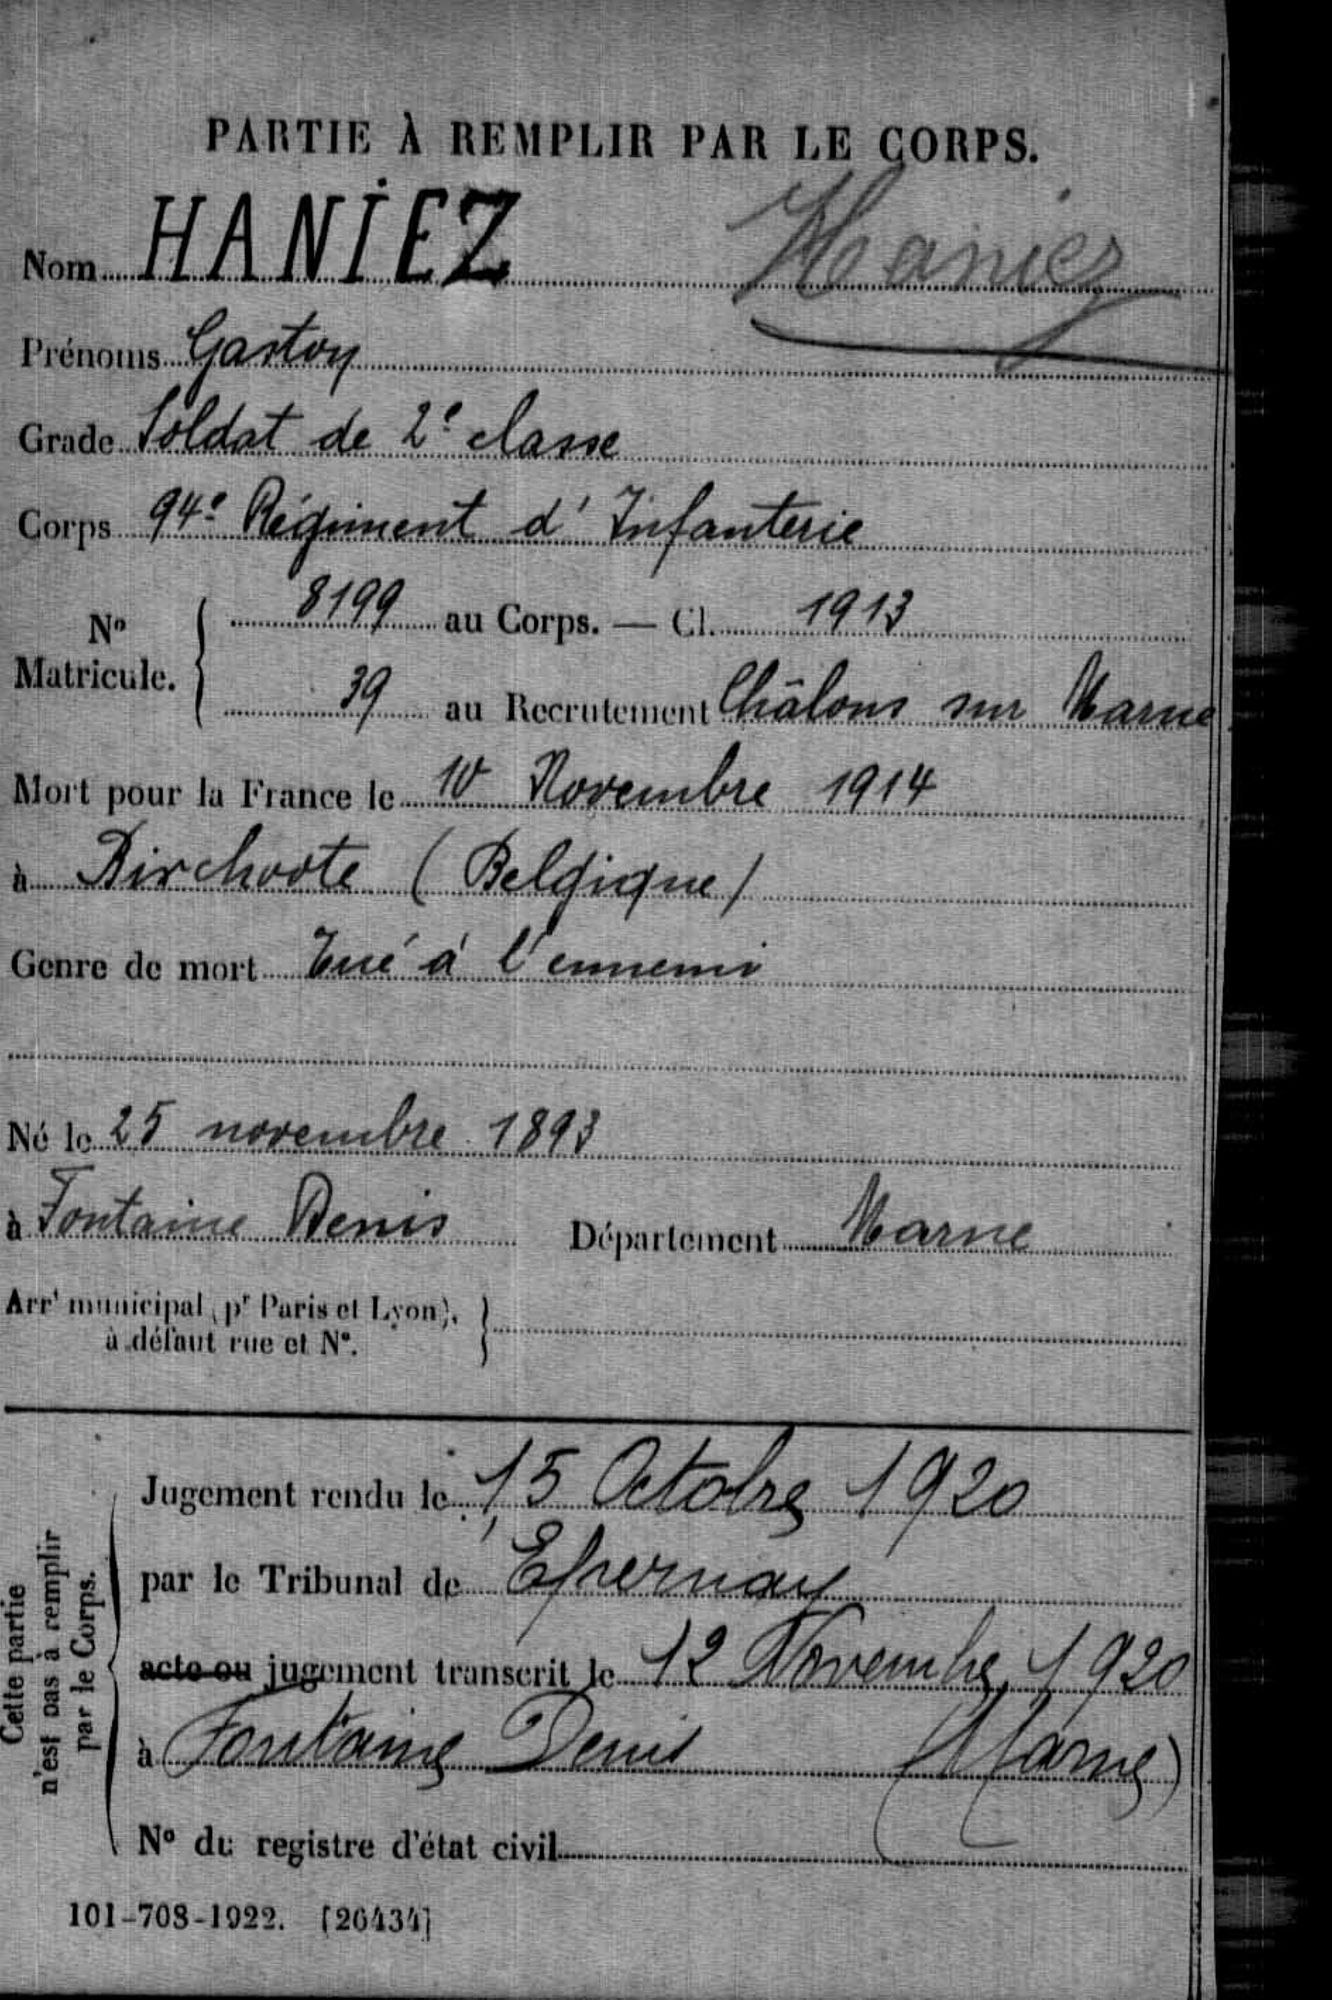 PARTIE À REMPLIR PAR LE CORPS.
Nom HANIEZ Haniez
Prénoms Gaston
Grade Soldat de 2e classe
Corps 94e Régiment d'Infanterie
No Matricule. { 8199 au Corps. — Cl. 1913
39 au Recrutement Châlons sur Marne
Mort pour la France le 10 Novembre 1914
à Birchoote (Belgique)
Genre de mort Tué à l'ennemi
Né le 25 novembre 1893
à Fontaine Denis Département Marne
Arrt municipal (pr Paris et Lyon), à défaut rue et No. }
Cette partie n'est pas à remplir par le Corps.
Jugement rendu le 15 Octobre 1920
par le Tribunal de Epernay
acte ou jugement transcrit le 12 Novembre 1920
à Fontaine Denis (Marne)
No du registre d'état civil
101-708-1922. [26434]